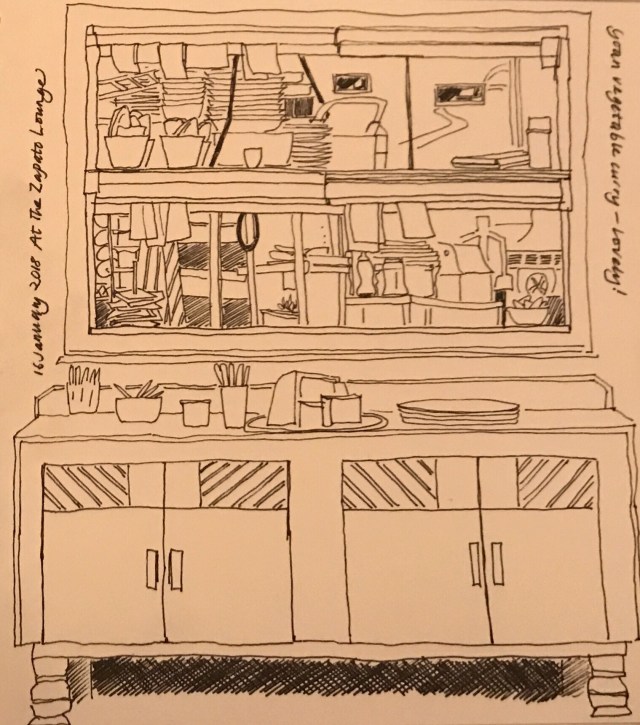 16 January 2018 At The Zapato Lounge
Goan vegetable curry - Lovely!